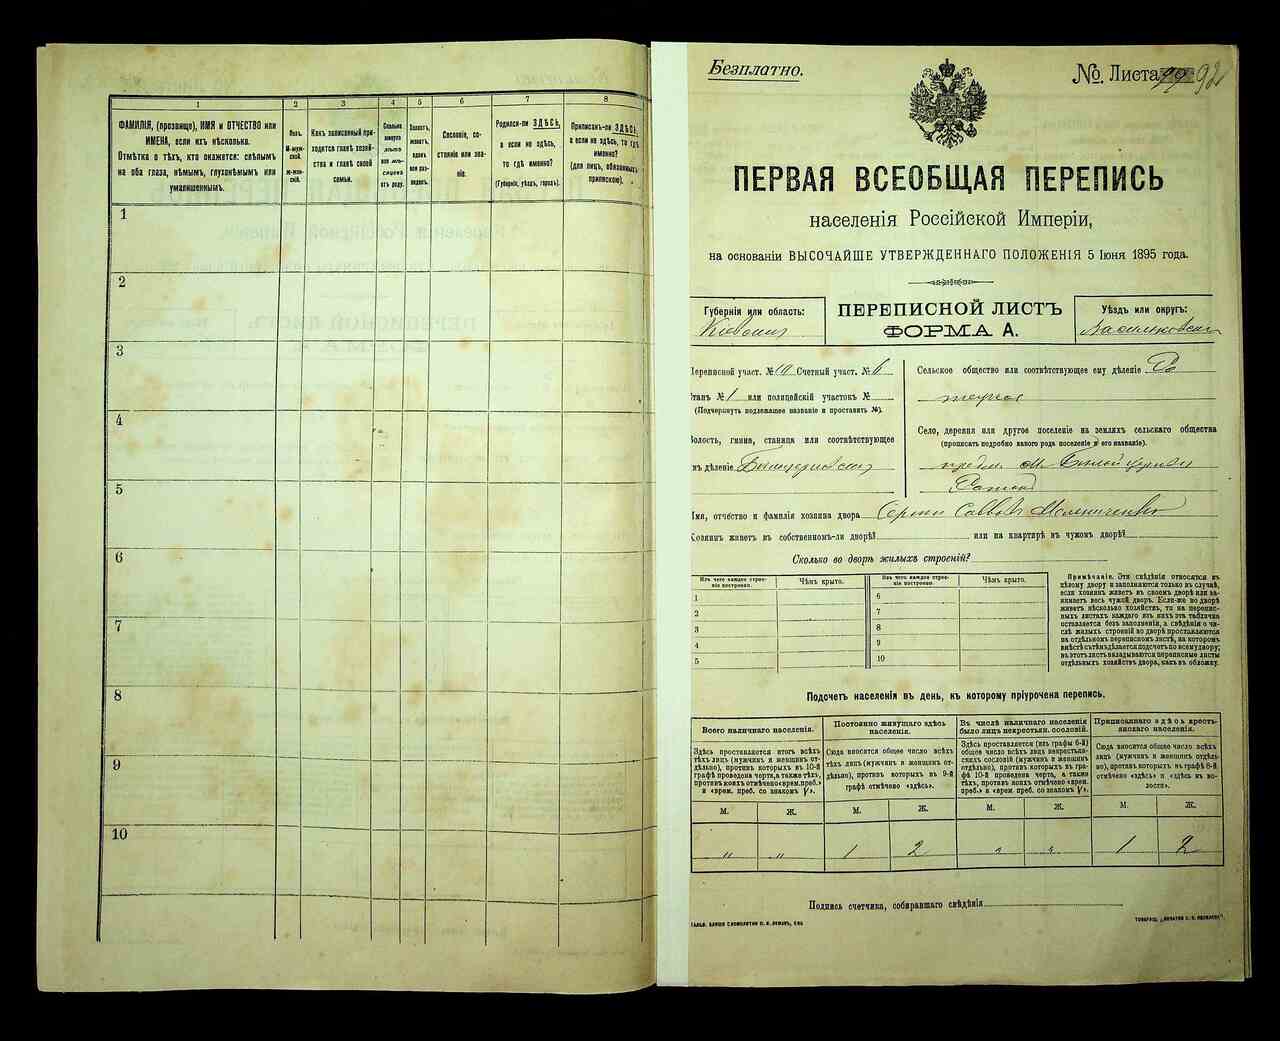 1
2
3
4
5
6
7
8
ФАМИЛІЯ, (прозвище), ИМЯ и ОТЧЕСТВО или
ИМЕНА, если ихъ нѣсколько.
Отмѣтка о тѣхъ, кто окажется: слѣпымъ
на оба глаза, нѣмымъ, глухонѣмымъ или
умалишеннымъ.
Полъ.
М-муж-
ской.
Ж-жен-
скій.
Какъ записанный при-
ходится главѣ хозяй-
ства и главѣ своей
семьи.
Сколько
минуло
лѣтъ
или мѣ-
сяцевъ
отъ роду.
Холостъ,
женатъ,
вдовъ
или раз-
веденъ.
Сословіе, со-
стояніе или зва-
ніе.
Родился-ли ЗДѢСЬ,
а если не здѣсь,
то гдѣ именно?
(Губернія, уѣздъ, городъ).
Приписанъ-ли ЗДѢСЬ,
а если не здѣсь, то гдѣ
именно?
(для лицъ, обязанныхъ
припискою).
1
2
3
4
5
6
7
8
9
10
Безплатно.
№. Листа 92
ПЕРВАЯ ВСЕОБЩАЯ ПЕРЕПИСЬ
населенія Россійской Имперіи,
на основаніи ВЫСОЧАЙШЕ УТВЕРЖДЕННАГО ПОЛОЖЕНІЯ 5 Іюня 1895 года.
Губернія или область:
Кіевская
ПЕРЕПИСНОЙ ЛИСТЪ
ФОРМА А.
Уѣздъ или округъ:
Васильковскій
Переписной участ. № Счетный участ. № 6
Станъ № 1 или полицейскій участокъ №
(Подчеркнуть подлежащее названіе и проставить №).
Волость, гмина, станица или соотвѣтствующее
въ дѣленіе
Сельское общество или соотвѣтствующее ему дѣленіе
Село, деревня или другое поселеніе на земляхъ сельскаго общества
(прописать подробно какого рода поселеніе и его названіе).
предм. м. Бѣлой Церкви
Имя, отчество и фамилія хозяина двора
Хозяинъ живетъ въ собственномъ-ли дворѣ? или на квартирѣ въ чужомъ дворѣ?
Сколько во дворѣ жилыхъ строеній?
Изъ чего каждое строе-
ніе построено.
Чѣмъ крыто.
Изъ чего каждое строе-
ніе построено.
Чѣмъ крыто.
1
2
3
4
5
6
7
8
9
10
Примѣчаніе. Эти свѣдѣнія относятся къ
цѣлому двору и заполняются только въ случаѣ,
если хозяинъ живетъ въ своемъ дворѣ или за-
нимаетъ весь чужой дворъ. Если-же во дворѣ
живетъ нѣсколько хозяйствъ, то на перепис-
ныхъ листахъ каждаго изъ нихъ эта табличка
оставляется безъ заполненія, а свѣдѣнія о чи-
слѣ жилыхъ строеній во дворѣ проставляются
на отдѣльномъ переписномъ листѣ, на которомъ
вмѣстѣ съ тѣмъ дѣлается подсчетъ по всему двору;
въ этотъ листъ вкладываются переписные листы
отдѣльныхъ хозяйствъ двора, какъ въ обложку.
Подсчетъ населенія въ день, къ которому пріурочена перепись.
Всего наличнаго населенія.
Постоянно живущаго здѣсь
населенія.
Въ числѣ наличнаго населенія
было лицъ некрестьян. сословій.
Приписаннаго здѣсь кресть-
янскаго населенія.
Здѣсь проставляется итогъ всѣхъ
тѣхъ лицъ (мужчинъ и женщинъ от-
дѣльно), противъ которыхъ въ 10-й
графѣ проведена черта, а также тѣхъ,
противъ коихъ отмѣчено «врем. преб.»
и «врем. преб. со знакомъ V».
Сюда вносится общее число всѣхъ
тѣхъ лицъ (мужчинъ и женщинъ от-
дѣльно), противъ которыхъ въ 9-й
графѣ отмѣчено «здѣсь».
Здѣсь проставляется (изъ графы 6-й)
общее число всѣхъ лицъ некрестьян-
скихъ сословій (мужчинъ и женщинъ
отдѣльно), противъ которыхъ въ гра-
фѣ 10-й проведена черта, а также
тѣхъ, противъ коихъ отмѣчено «врем.
преб.» и «врем. преб. со знакомъ V».
Сюда вносится общее число всѣхъ
лицъ (мужчинъ и женщинъ отдѣль-
но), противъ которыхъ въ графѣ 8-й
отмѣчено «здѣсь» и «здѣсь въ во-
лости».
М.
Ж.
М.
Ж.
М.
Ж.
М.
Ж.
"
"
1
2
"
"
1
2
Подпись счетчика, собиравшаго свѣдѣнія